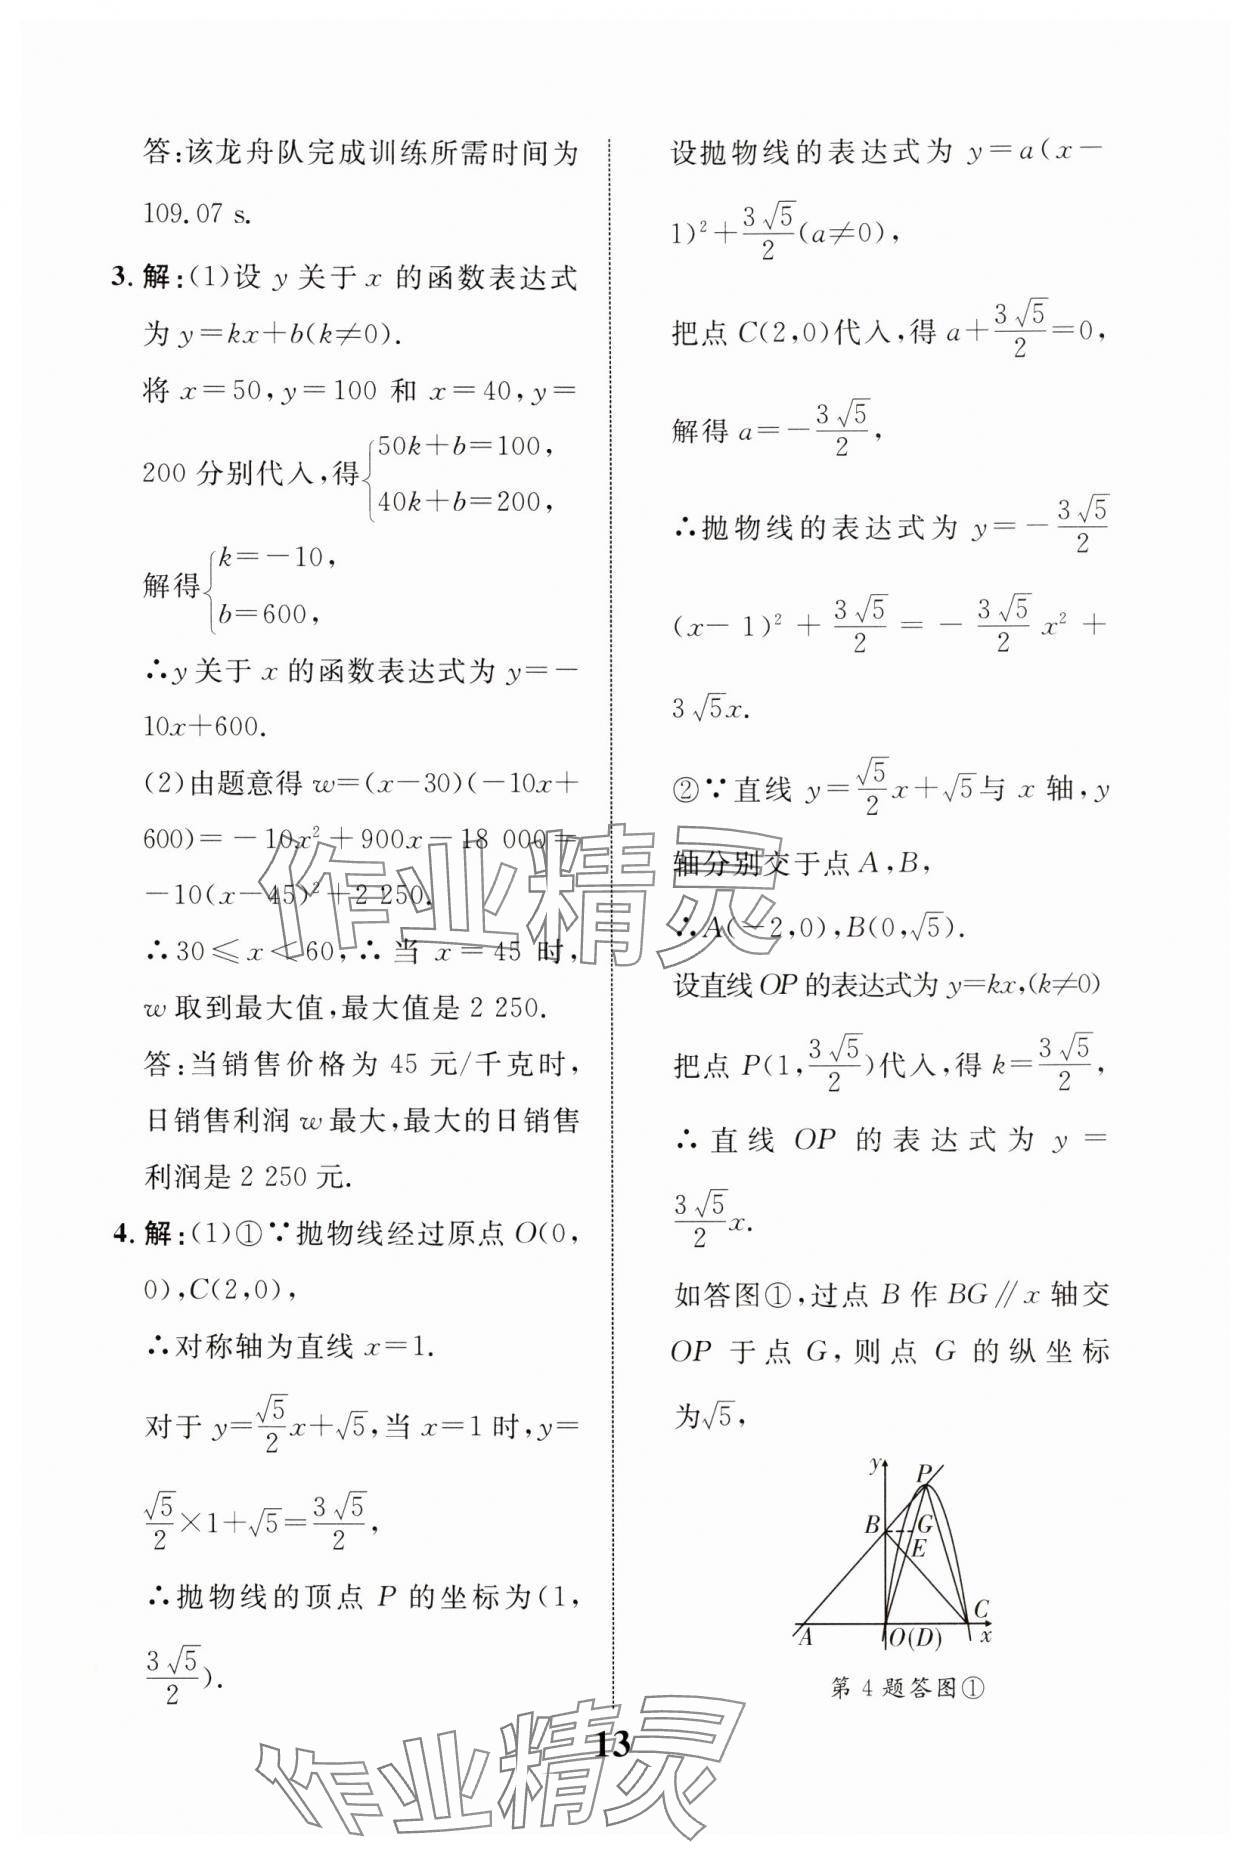 答:该龙舟队完成训练所需时间为
109.07 s.
3. 解:(1)设 y 关于 x 的函数表达式
为 y=kx+b(k≠0).
将 x=50,y=100 和 x=40,y=
200 分别代入,得{50k+b=100,
40k+b=200,
解得{k=-10,
b=600,
∴y 关于 x 的函数表达式为 y=-
10x+600.
(2)由题意得 w=(x-30)(-10x+
600)=-10x²+900x-18 000=
-10(x-45)²+2 250.
∴30≤x<60,∴当 x=45 时,
w 取到最大值,最大值是 2 250.
答:当销售价格为 45 元/千克时,
日销售利润 w 最大,最大的日销售
利润是 2 250 元.
4. 解:(1)①∵抛物线经过原点 O(0,
0),C(2,0),
∴对称轴为直线 x=1.
对于 y=√5/2 x+√5,当 x=1 时,y=
√5/2×1+√5=3√5/2,
∴抛物线的顶点 P 的坐标为(1,
3√5/2).
设抛物线的表达式为 y=a(x-
1)²+3√5/2(a≠0),
把点 C(2,0)代入,得 a+3√5/2=0,
解得 a=-3√5/2,
∴抛物线的表达式为 y=-3√5/2
(x-1)²+3√5/2=-3√5/2 x²+
3√5x.
②∵直线 y=√5/2 x+√5与 x 轴,y
轴分别交于点 A,B,
∴A(-2,0),B(0,√5).
设直线 OP 的表达式为 y=kx,(k≠0)
把点 P(1,3√5/2)代入,得 k=3√5/2,
∴直线 OP 的表达式为 y=
3√5/2 x.
如答图①,过点 B 作 BG∥x 轴交
OP 于点 G,则点 G 的纵坐标
为√5,
y
P
B
G
E
C
A
O(D)
x
第 4 题答图①
13
作业精灵
作业精灵